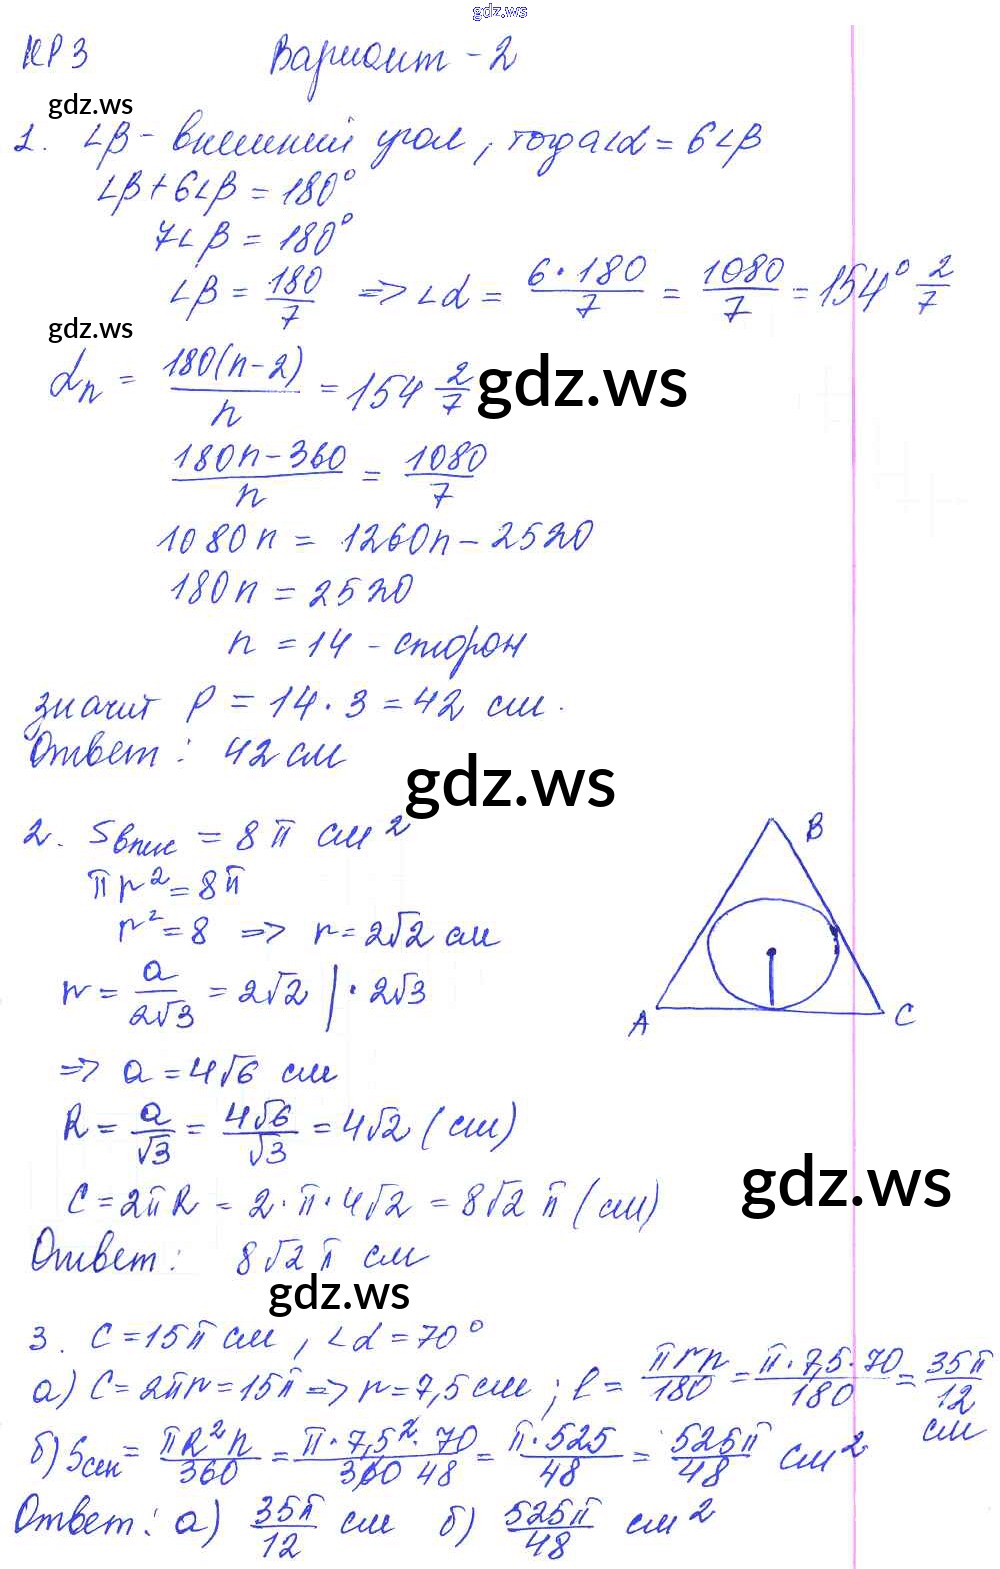 gdz.ws
КР 3 Вариант - 2
gdz.ws
1. ∠β - внешний угол, тогда ∠α = 6∠β
∠β + 6∠β = 180°
7∠β = 180°
∠β = 180/7 => ∠α = 6·180/7 = 1080/7 = 154° 2/7
gdz.ws
αn = 180(n-2)/n = 154 2/7
gdz.ws
180n - 360/n = 1080/7
1080n = 1260n - 2520
180n = 2520
n = 14 - сторон
значит P = 14 · 3 = 42 см.
Ответ: 42 см
gdz.ws
2. Sвпис = 8π см²
πr² = 8π
r² = 8 => r = 2√2 см
r = a/2√3 = 2√2 | · 2√3
B
A
C
=> a = 4√6 см
R = a/√3 = 4√6/√3 = 4√2 (см)
gdz.ws
C = 2πR = 2·π·4√2 = 8√2 π (см)
Ответ: 8√2 π см
gdz.ws
3. C = 15π см, ∠α = 70°
а) C = 2πr = 15π => r = 7,5 см; l = πrn/180 = π·7,5·70/180 = 35π/12 см
б) Sсек = πR²n/360 = π·7,5²·70/360 48 = π·525/48 = 525π/48 см²
Ответ: а) 35π/12 см б) 525π/48 см²